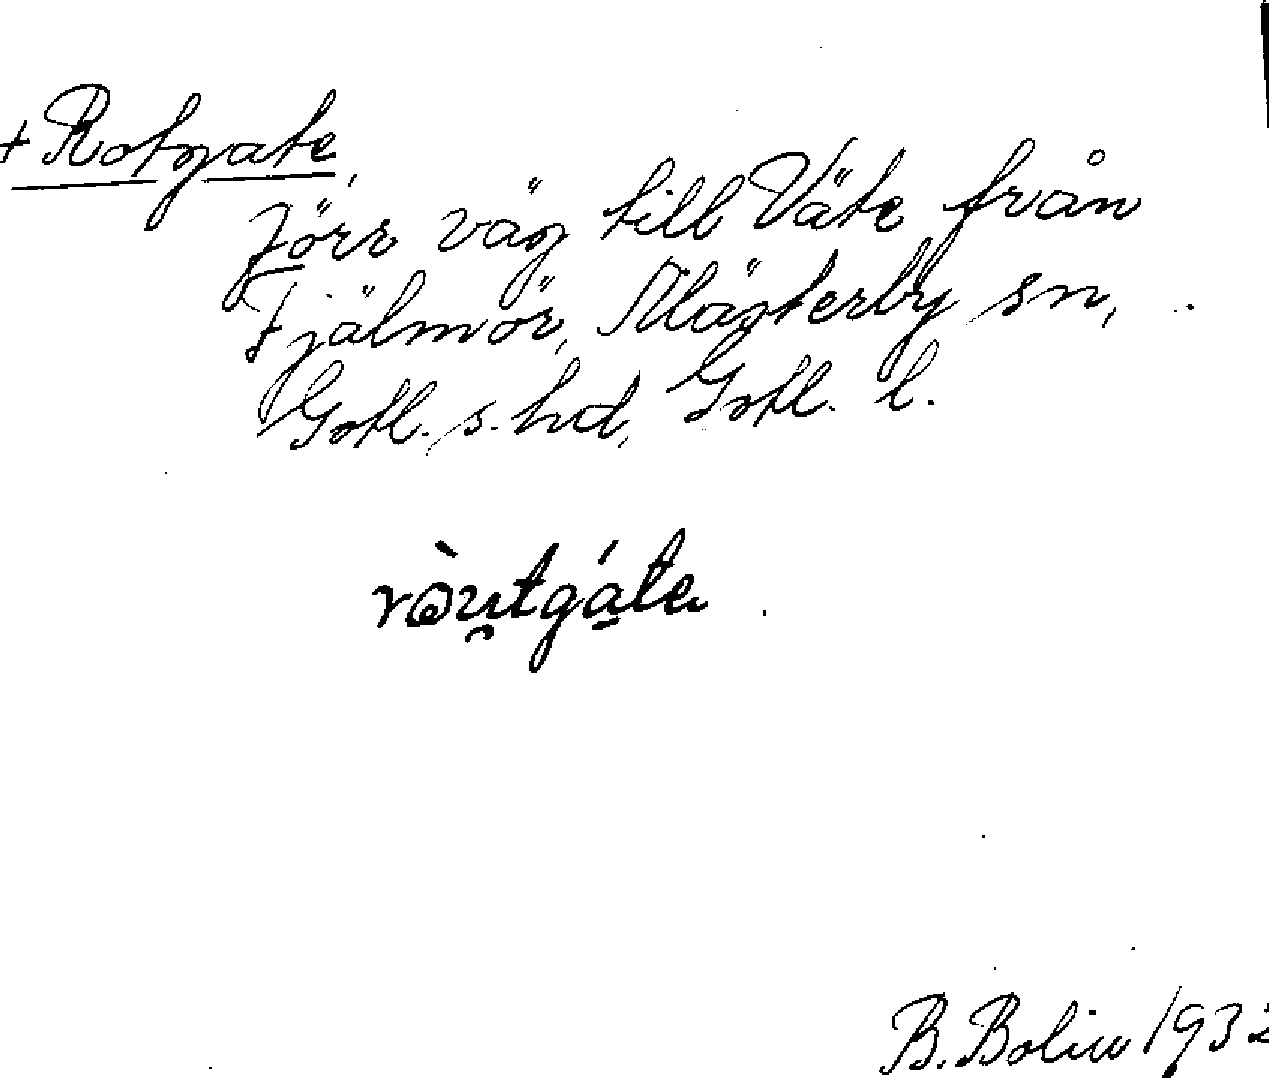 + Rotgate,
Förr väg till Väte från
Fjälmör, Mästerby sn,
Gotl. s. hd, Gotl. l.
ròu̯tgátɐ
B. Bolin 1932